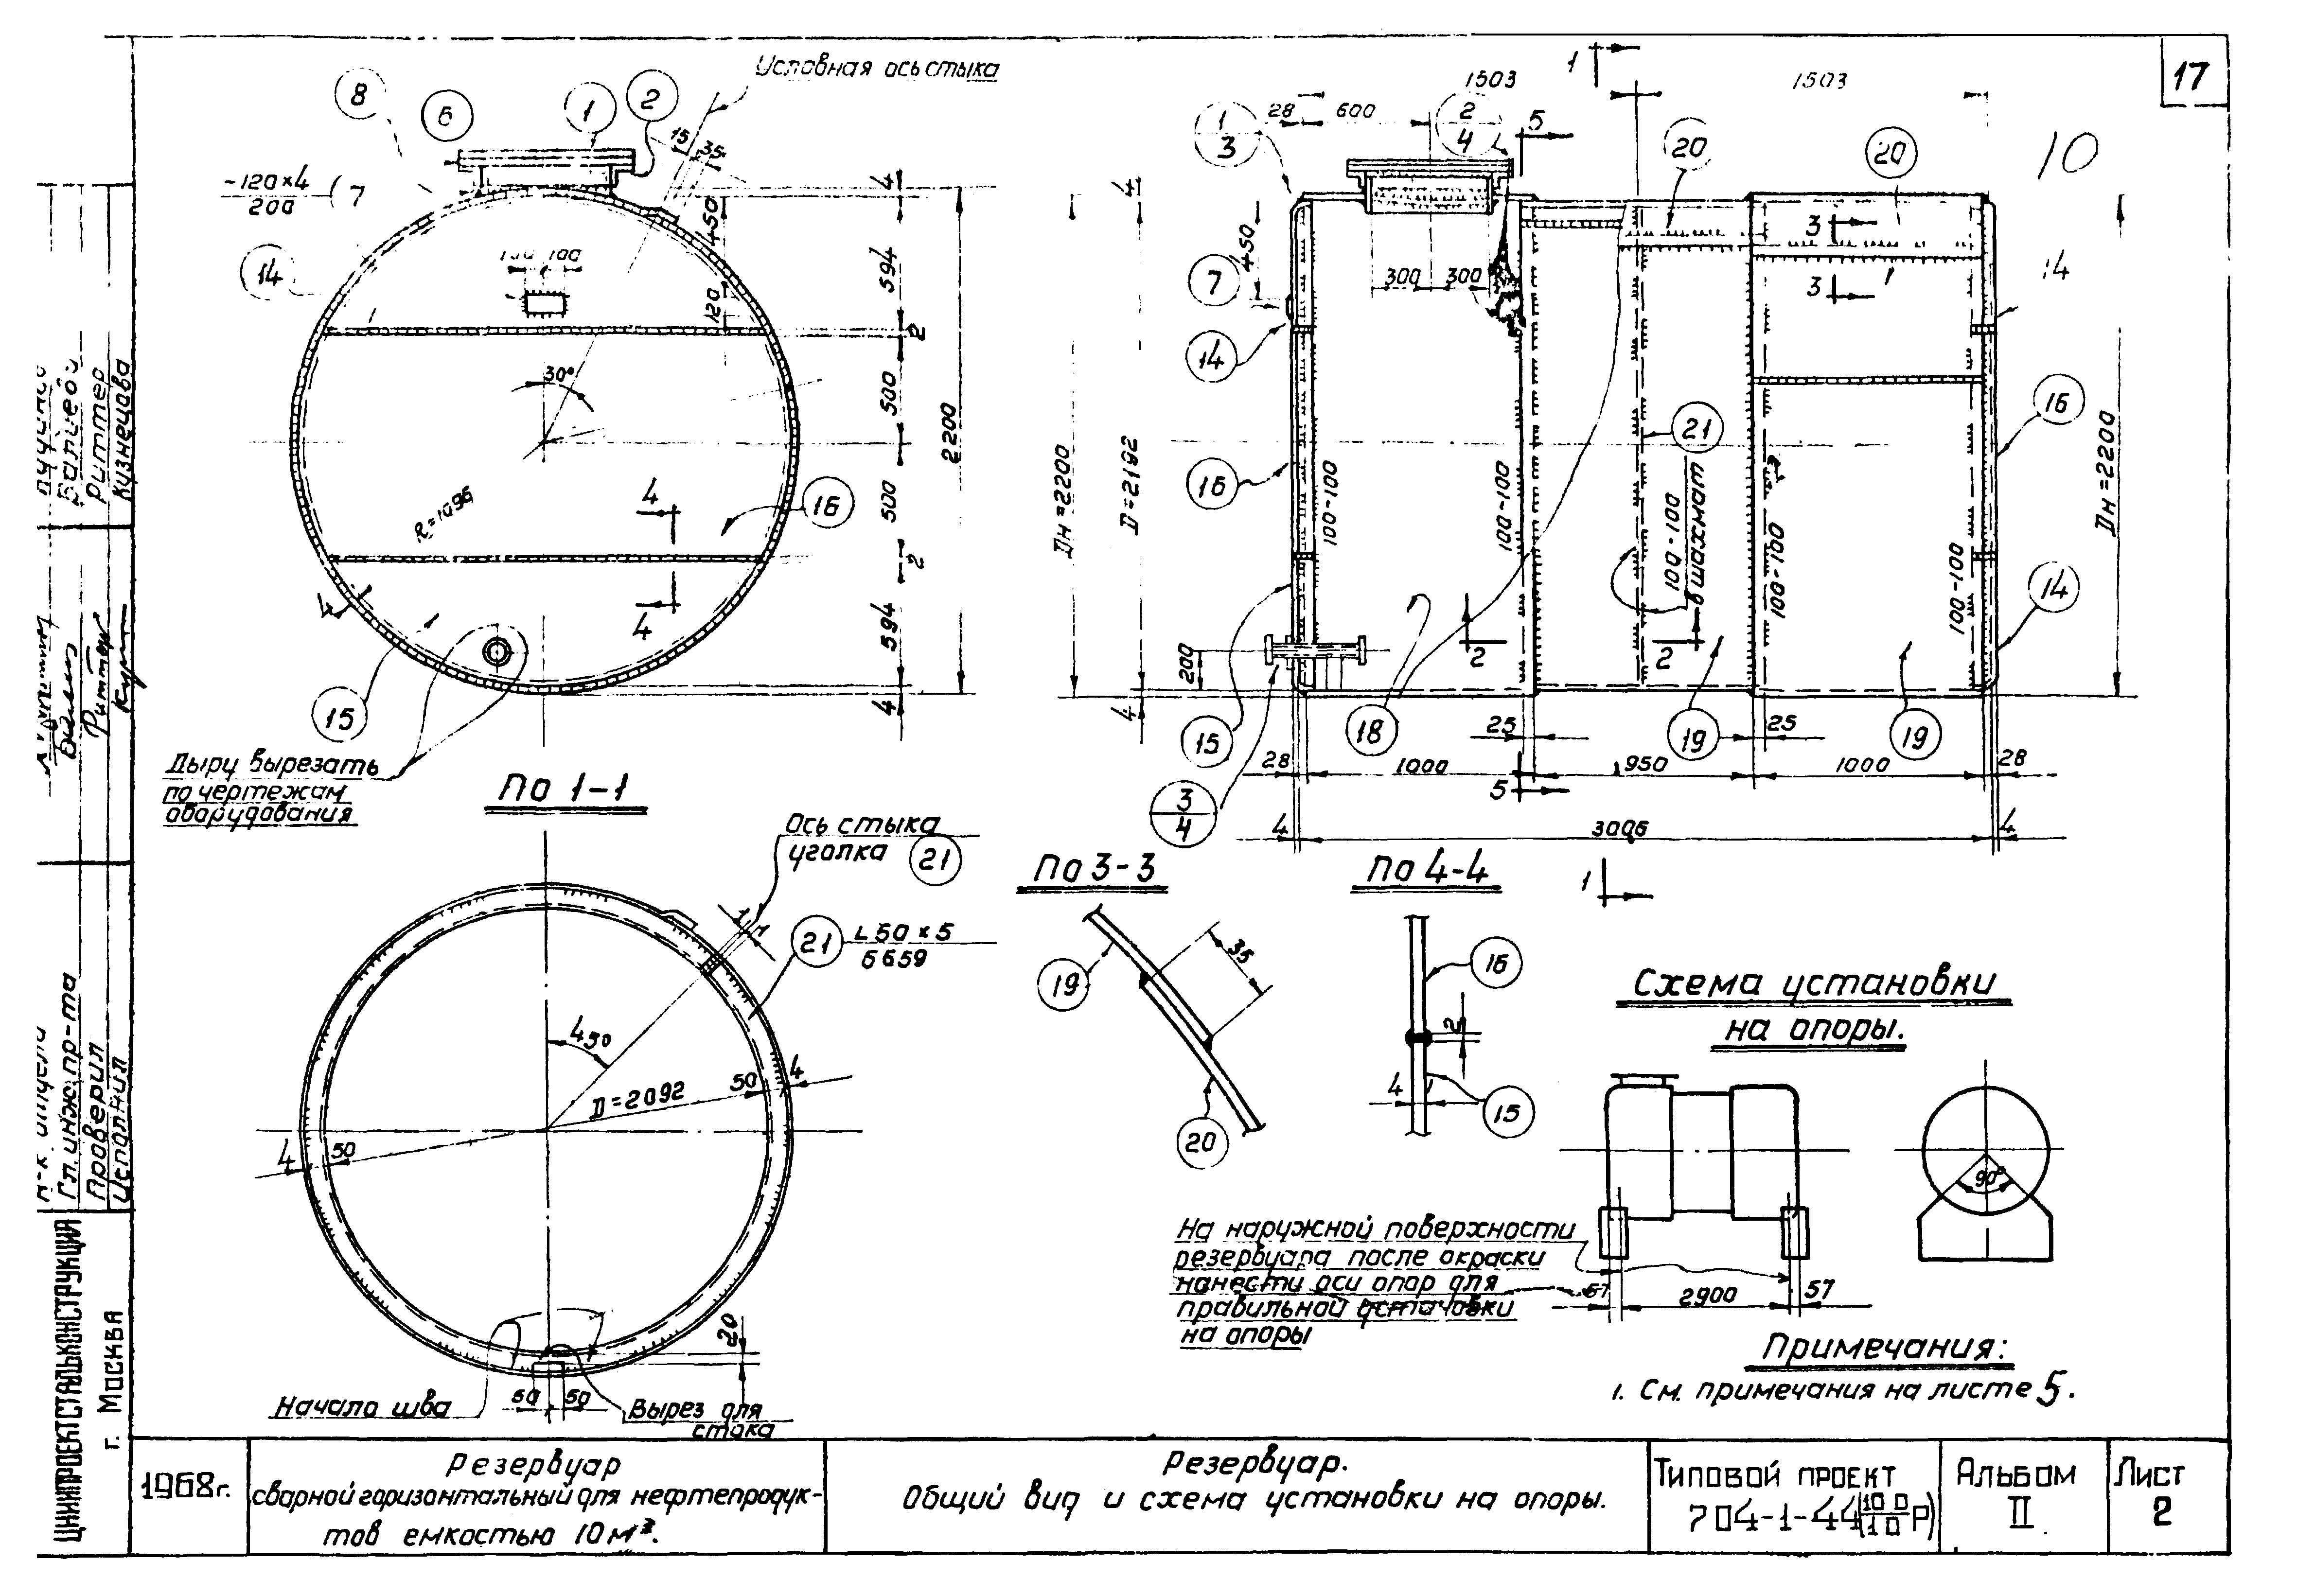 17
10
Условная ось стыка
8
6
1
2
15
35
-120×4
200
7
14
4
450
594
120
2
30°
500
2200
R=1096
4
16
500
2
4
4
594
4
15
Дыру вырезать
по чертежам
оборудования
1
1503
1503
28
600
1
3
2
4
5
20
20
4
450
7
300
300
3
3
14
14
16
16
21
Дн=2200
D=2192
100-100
100-100
100-100
в шахмат
100-100
100-100
Дн=2200
14
2
2
200
4
15
18
19
19
25
25
28
1000
950
1000
28
5
3
4
4
3006
4
1
По 1-1
Ось стыка
уголка
21
1
1
21
L 50×5
6659
450
D=2092
50
4
4
50
20
50
50
Начало шва
Вырез для
стока
По 3-3
19
35
20
По 4-4
16
2
4
15
Схема установки
на опоры.
90°
На наружной поверхности
резервуара после окраски
нанести оси опор для
правильной установки
на опоры
57
2900
57
Примечания:
1. См. примечания на листе 5.
Риттер
Кузнецова
Гл.инж.пр-та
Проверил
Исполнил
ЦНИИПРОЕКТСТАЛЬКОНСТРУКЦИЯ
г. Москва
1968г.
Резервуар
сварной горизонтальный для нефтепродук-
тов емкостью 10м³.
Резервуар.
Общий вид и схема установки на опоры.
Типовой проект
704-1-44(100/10 Р)
Альбом
II
Лист
2